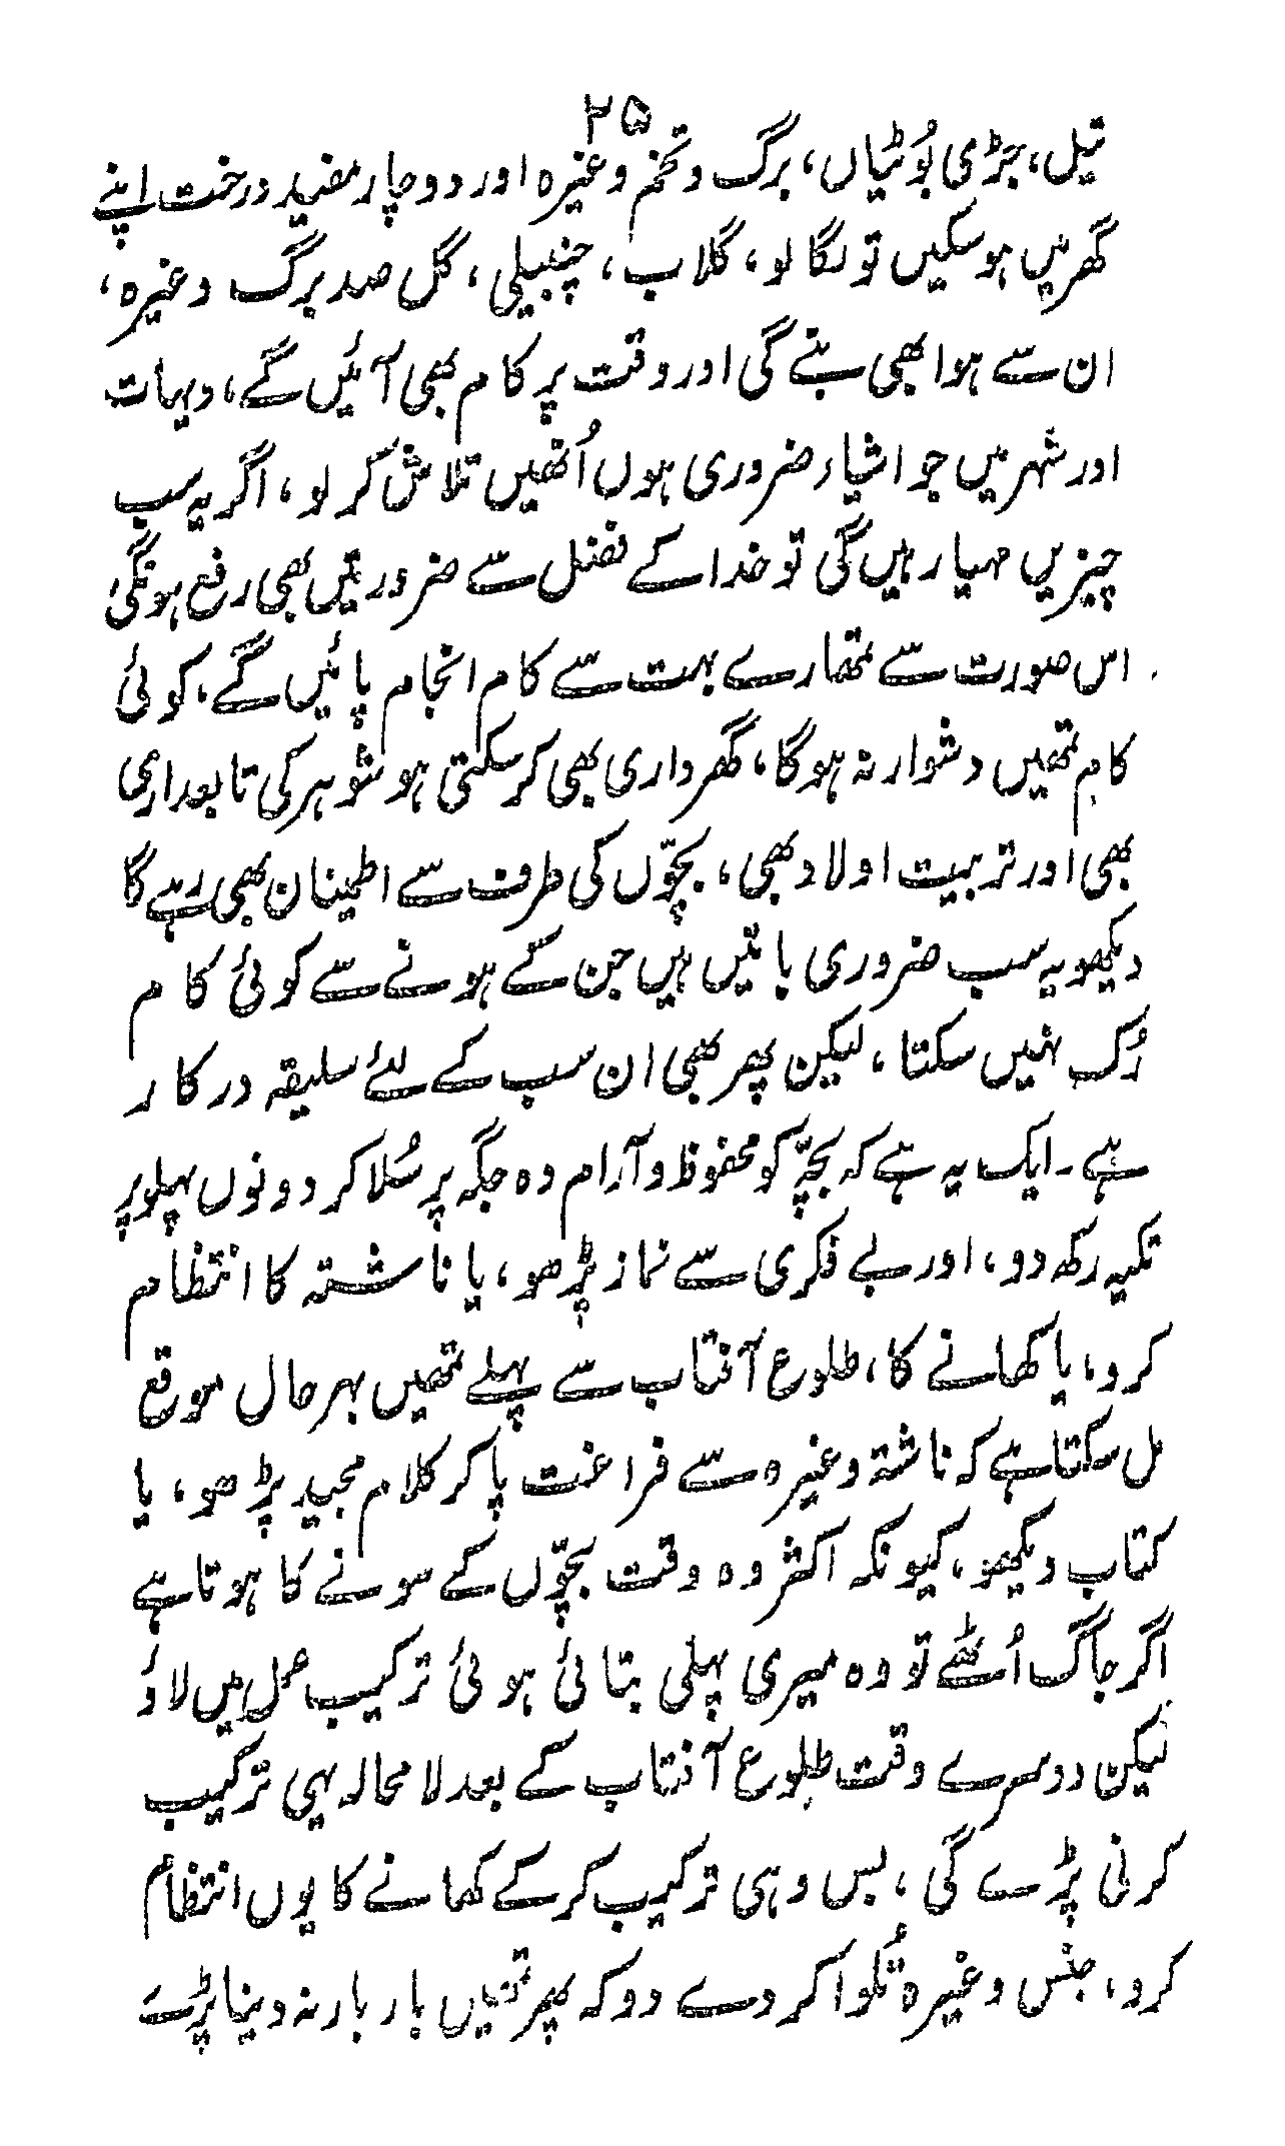 ۲۵
تیل، جڑی بُوٹیاں، برگ و تخم وغیرہ اور دو چار مفید درخت اپنے
گھر میں ہو سکیں تو لگا لو، گلاب، چنبیلی، گل صد برگ وغیرہ،
ان سے ہوا بھی بنے گی اور وقت پر کام بھی آئیں گے، دیہات
اور شہر میں جو اشیاء ضروری ہوں اُنھیں تلاش کر لو، اگر یہ سب
چیزیں مہیا رہیں گی تو خدا کے فضل سے ضرورتیں بھی رفع ہونگی
اس صورت سے تمھارے بہت سے کام انجام پائیں گے، کوئی
کام تمھیں دشوار نہ ہوگا، گھر داری بھی کر سکتی ہو شوہر کی تابعداری
بھی اور تربیت اولاد بھی، بچّوں کی طرف سے اطمینان بھی رہے گا
دیکھو یہ سب ضروری باتیں ہیں جن کے ہونے سے کوئی کام
رُک نہیں سکتا، لیکن پھر بھی ان سب کے لئے سلیقہ درکار
ہے۔ ایک یہ ہے کہ بچّہ کو محفوظ و آرام دہ جگہ پر سُلا کر دونوں پہلو پر
تکیہ رکھ دو، اور بے فکری سے نماز پڑھو، یا ناشتہ کا انتظام
کرو، یا کھانے کا، طلوع آفتاب سے پہلے تمھیں بہرحال موقع
مل سکتا ہے کہ ناشتہ وغیرہ سے فراغت پا کر کلام مجید پڑھو، یا
کتاب دیکھو، کیونکہ اکثر وہ وقت بچّوں کے سونے کا ہوتا ہے
اگر جاگ اُٹھے تو وہ میری پہلی بتائی ہوئی ترکیب عمل میں لاؤ
لیکن دوسرے وقت طلوع آفتاب کے بعد لامحالہ یہی ترکیب
کرنی پڑے گی، بس وہی ترکیب کر کے کھانے کا یوں انتظام
کرو، جنس وغیرہ تُلوا کر دے دو کہ پھر تمھیں بار بار نہ دینا پڑے